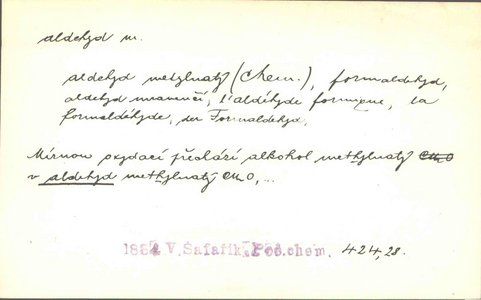 aldehyd m.
aldehyd methylnatý (Chem.), formaldehyd,
aldehyd mravenčí, l'aldéhyde formique, la
formaldéhyde, der Formaldehyd.
Mírnou oxydací přechází alkohol methylnatý
v aldehyd methylnatý CH₂O, ...
188 V. Šafařík, Poč. chem. 424, 28.